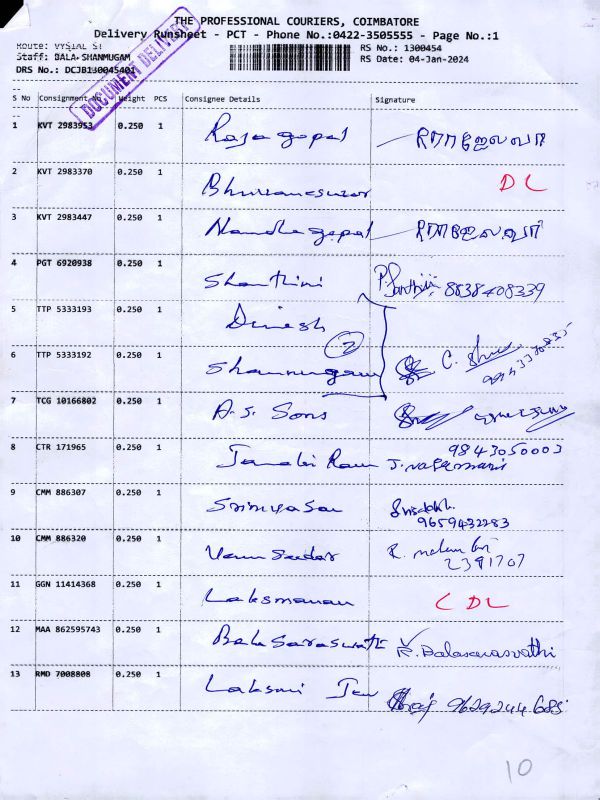 THE PROFESSIONAL COURIERS, COIMBATORE
Delivery Runsheet - PCT - Phone No.:0422-3505555 - Page No.:1
Route: VYSIAL ST RS No.: 1300454
Staff: BALA SHANMUGAM RS Date: 04-Jan-2024
DRS No.: DCJB130045401
DOCUMENT DELIVERY
S No Consignment No Weight PCS Consignee Details Signature
1 KVT 2983953 0.250 1 Rajagopal
2 KVT 2983370 0.250 1 Bhuvaneswar DL
3 KVT 2983447 0.250 1 Nandhagopal
4 PGT 6920938 0.250 1 Shanthini 8838408339
5 TTP 5333193 0.250 1 Dinesh
2
6 TTP 5333192 0.250 1 Shanmugam
7 TCG 10166802 0.250 1 A.S. Sons
8 CTR 171965 0.250 1 Janaki Ram J. nagamani 9843050003
9 CMM 886307 0.250 1 Srinivasan
9659432283
10 CMM 886320 0.250 1
2391707
11 GGN 11414368 0.250 1 Laksmanan CDL
12 MAA 862595743 0.250 1 Balasaraswathi K. Balasaraswathi
13 RMD 7008808 0.250 1 Laksmi 9629244685
10